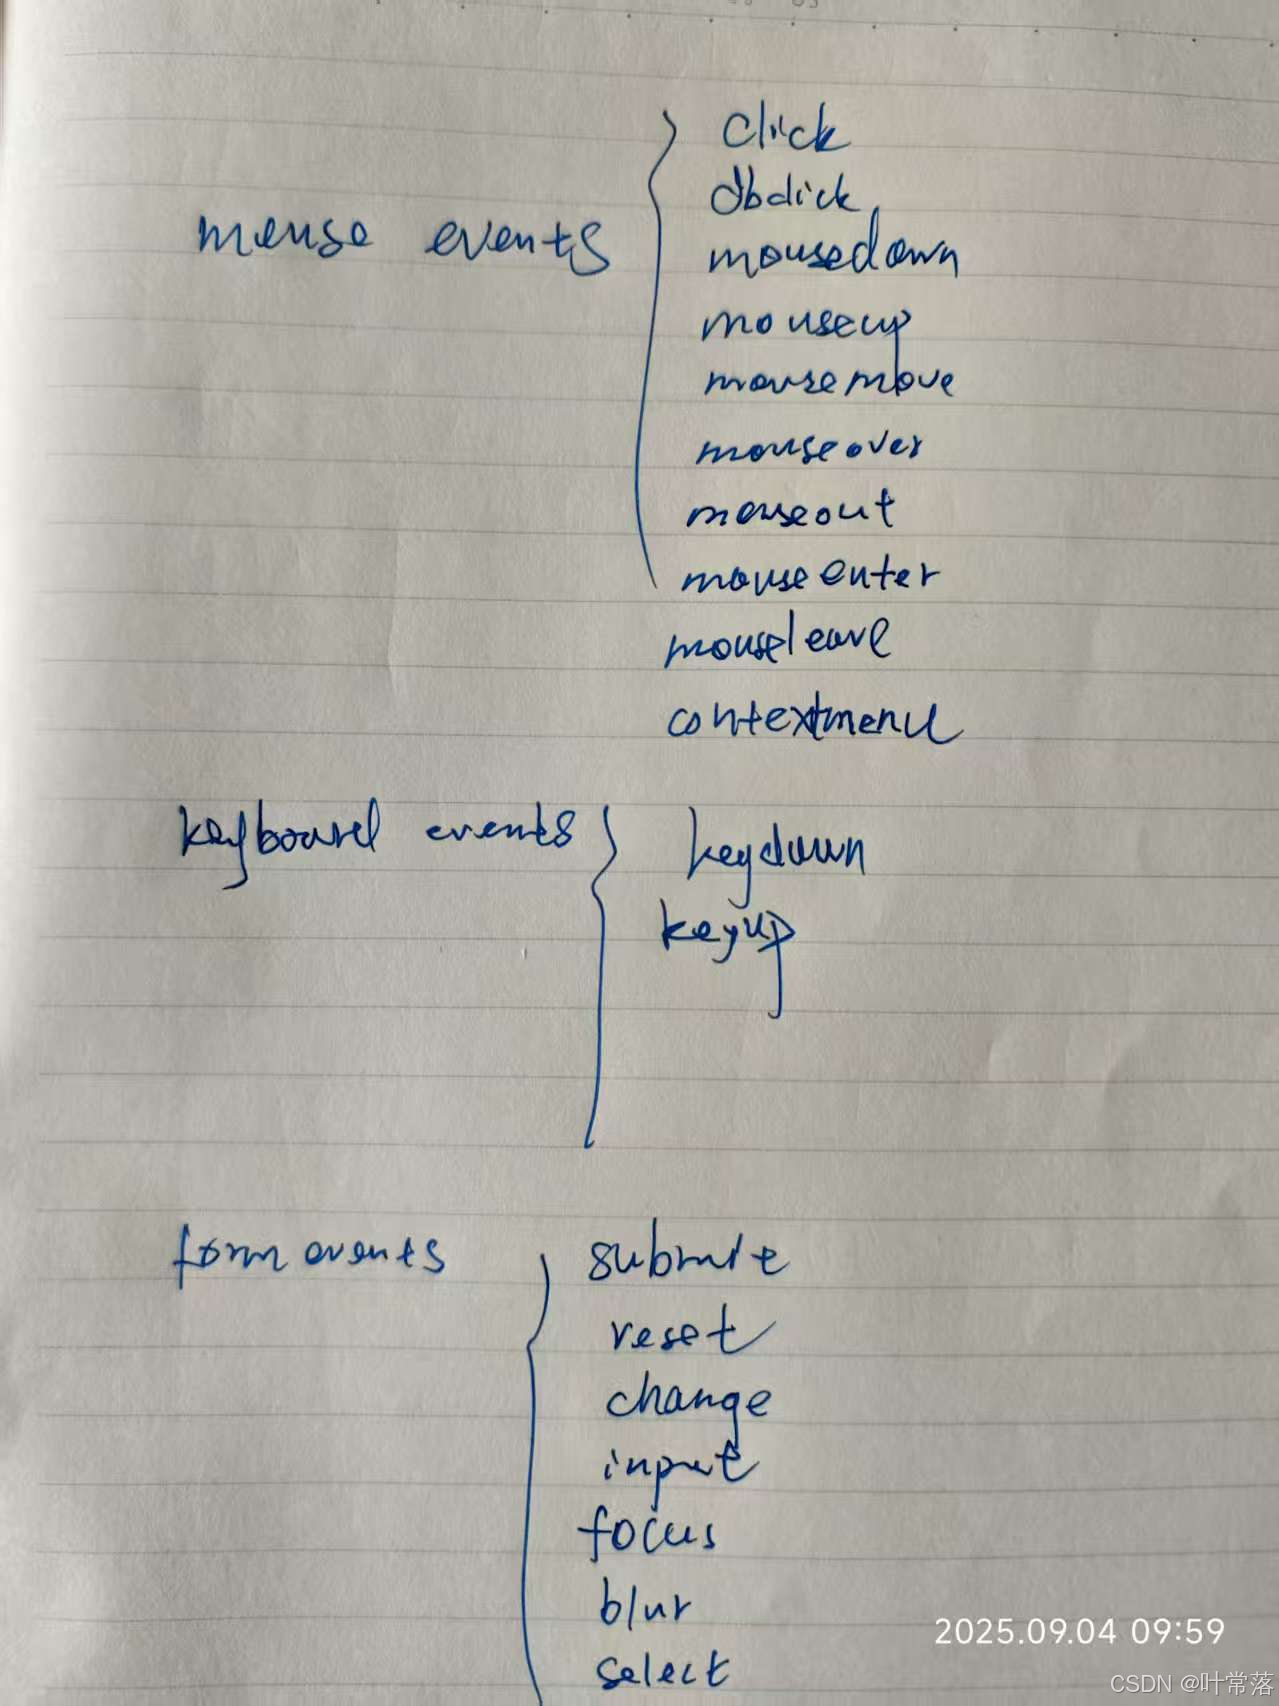 click
dbclick
mouse events
mousedown
mouseup
mousemove
mouseover
mouseout
mouseenter
mouseleave
contextmenu
keyboard events
keydown
keyup
form events
submit
reset
change
input
focus
blur
select
2025.09.04 09:59
CSDN @叶常落